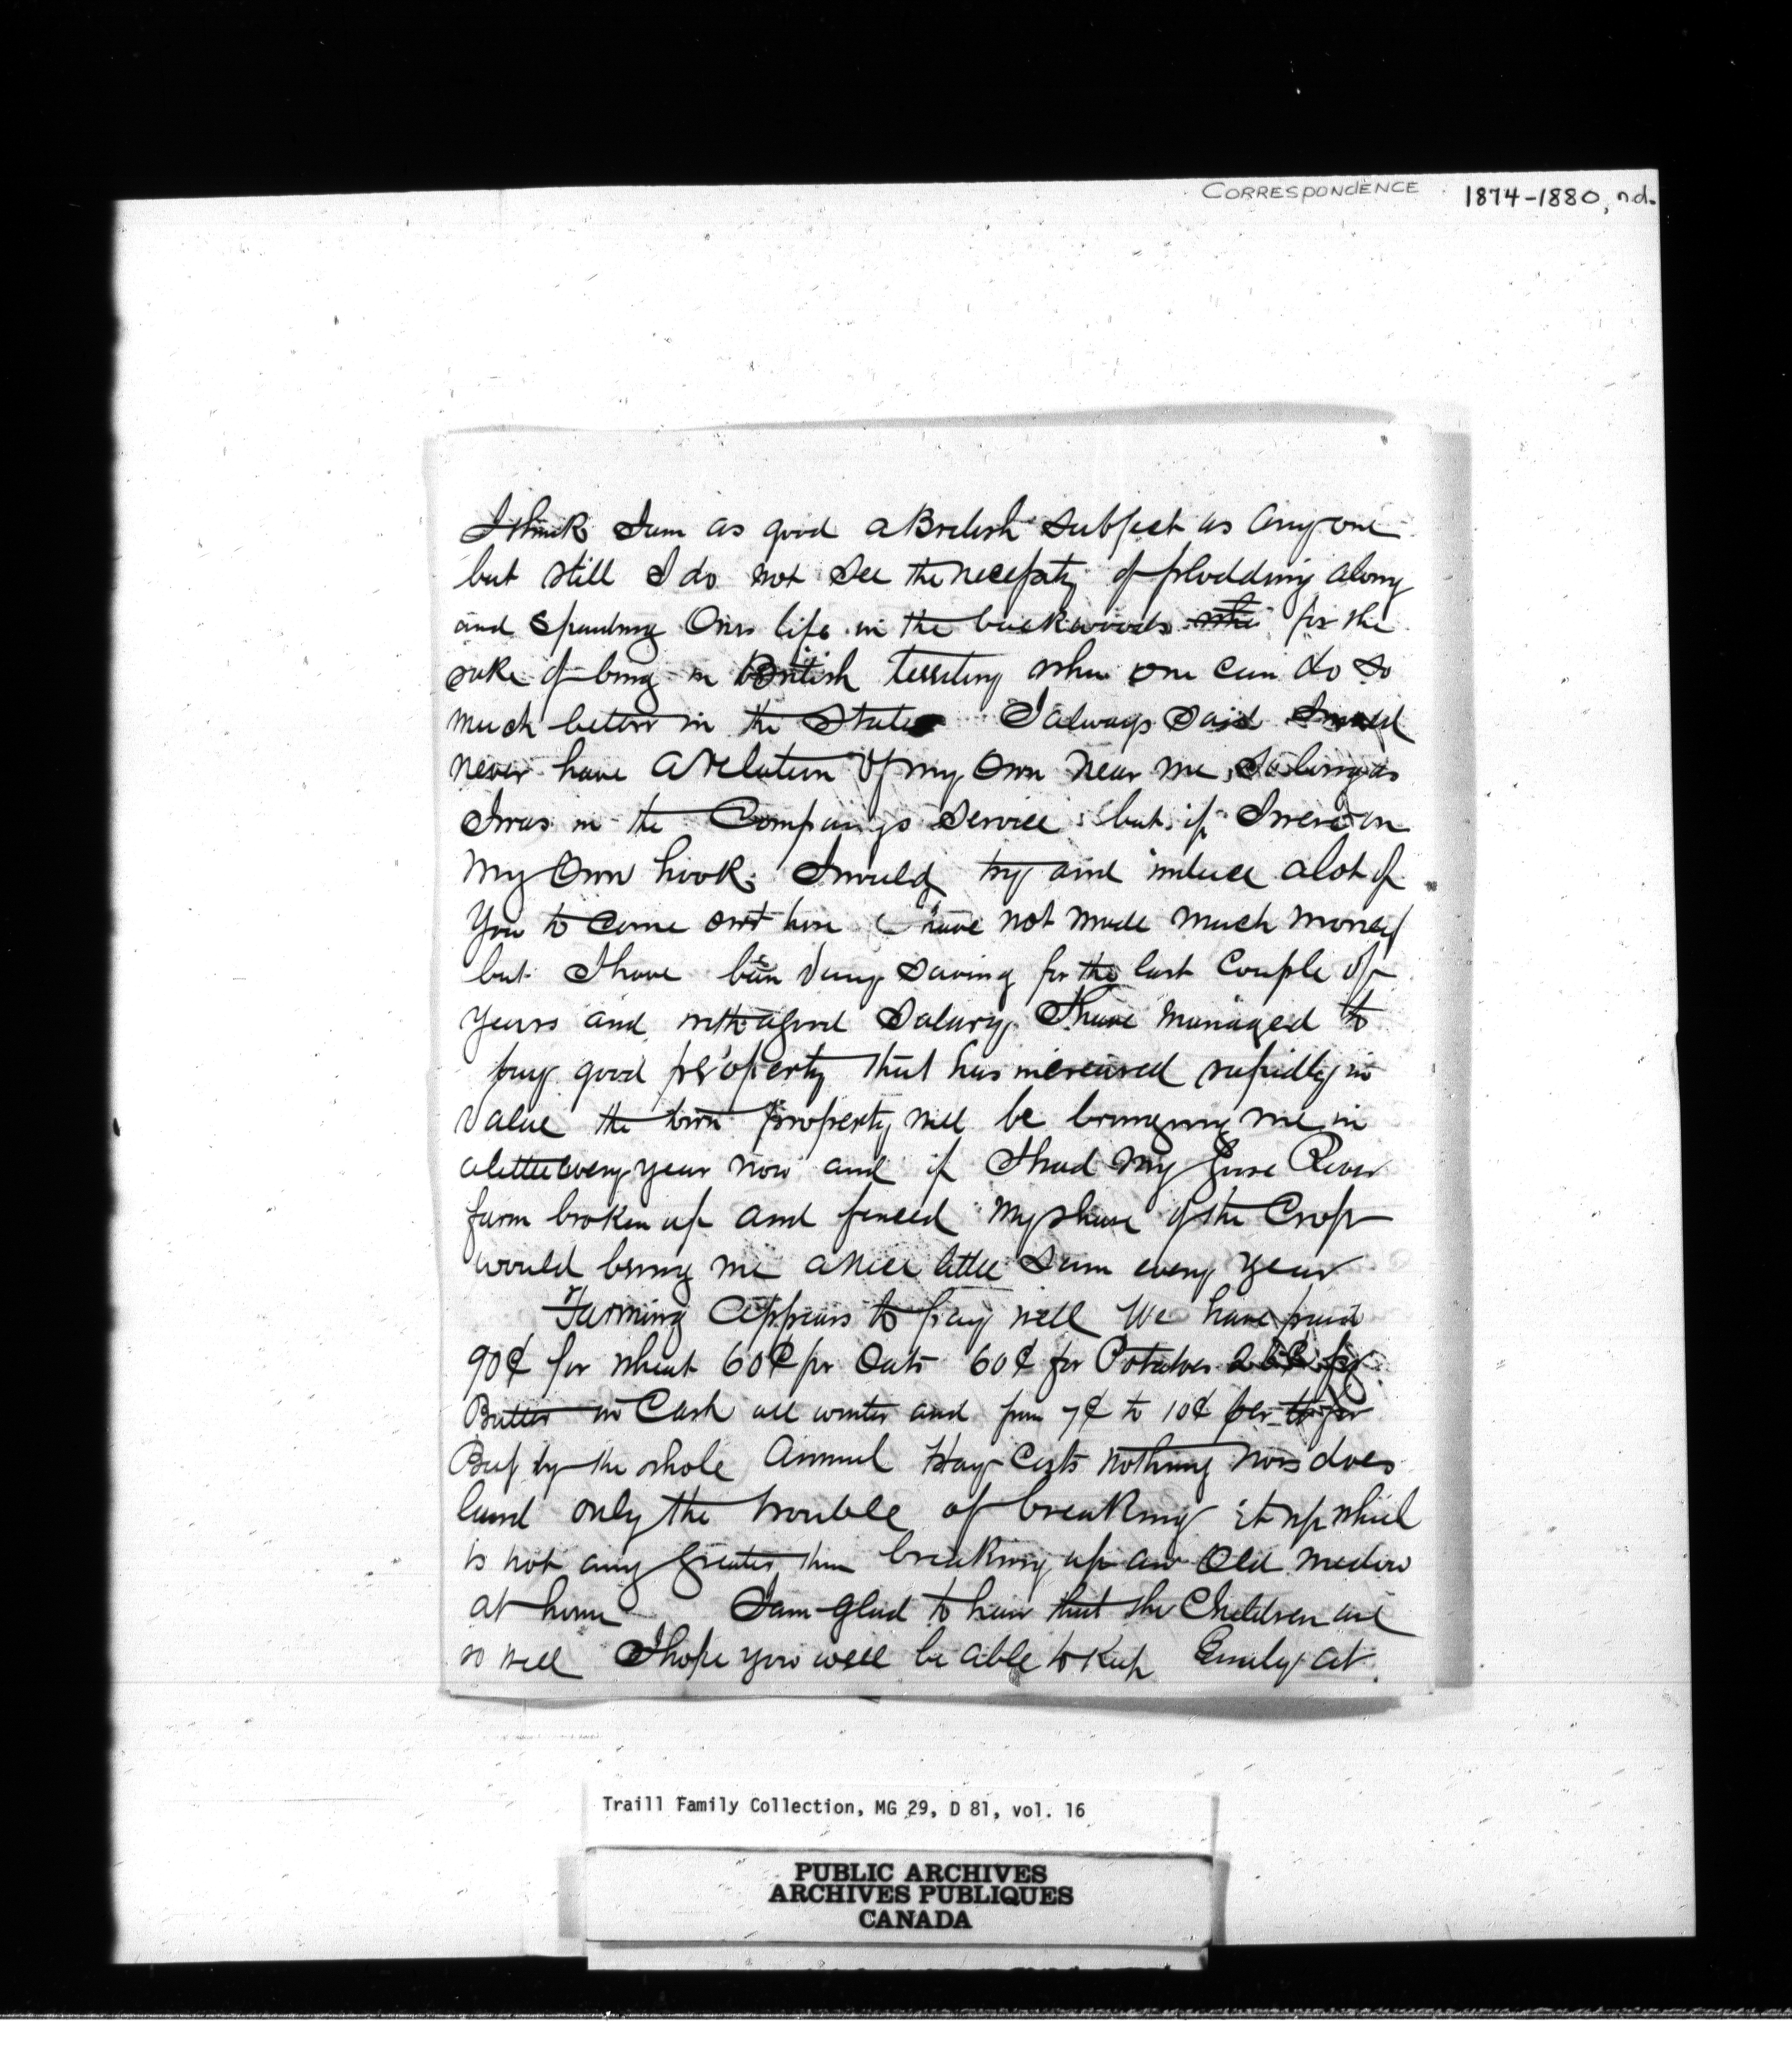 CORRESPONDENCE 1874-1880, n.d.
I think I am as good a British subject as any one
but still I do not see the necessity of plodding along
and spending Ones life in the backwoods for the
sake of being in British territory when one can do so
much better in the States I always said I would
never have a relation of my Own near me, So long as
I was in the Companys Service but if I were on
My Own hook I would try and induce a lot of
You to come out here I have not made much money
but I have been very saving for the last couple of
years and with a good Salary I have managed to
buy good property that has increased rapidly in
value the town property will be bringing me in
a little every year now and if I had my Goose River
farm broken up and fenced My share of the Crop
would bring me a nice little Sum every year
Farming appears to pay well We have paid
90¢ for wheat 60¢ for Oats 60¢ for Potatoes for
Butter in Cash all winter and from 7¢ to 10¢ per lb for
Beef by the whole Animal Hay Costs nothing nor does
land only the trouble of breaking it up which
is not any greater than breaking up an Old medow
at home I am glad to hear that the Children are
so well I hope you will be able to keep Emily at
Traill Family Collection, MG 29, D 81, vol. 16
PUBLIC ARCHIVES
ARCHIVES PUBLIQUES
CANADA